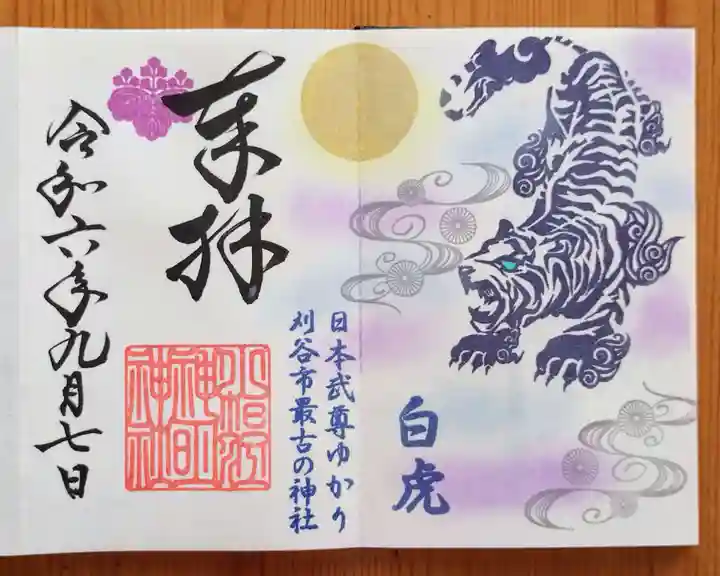 白虎
日本武尊ゆかり
刈谷市最古の神社
奉拝
小垣江
神明
神社
令和六年九月七日